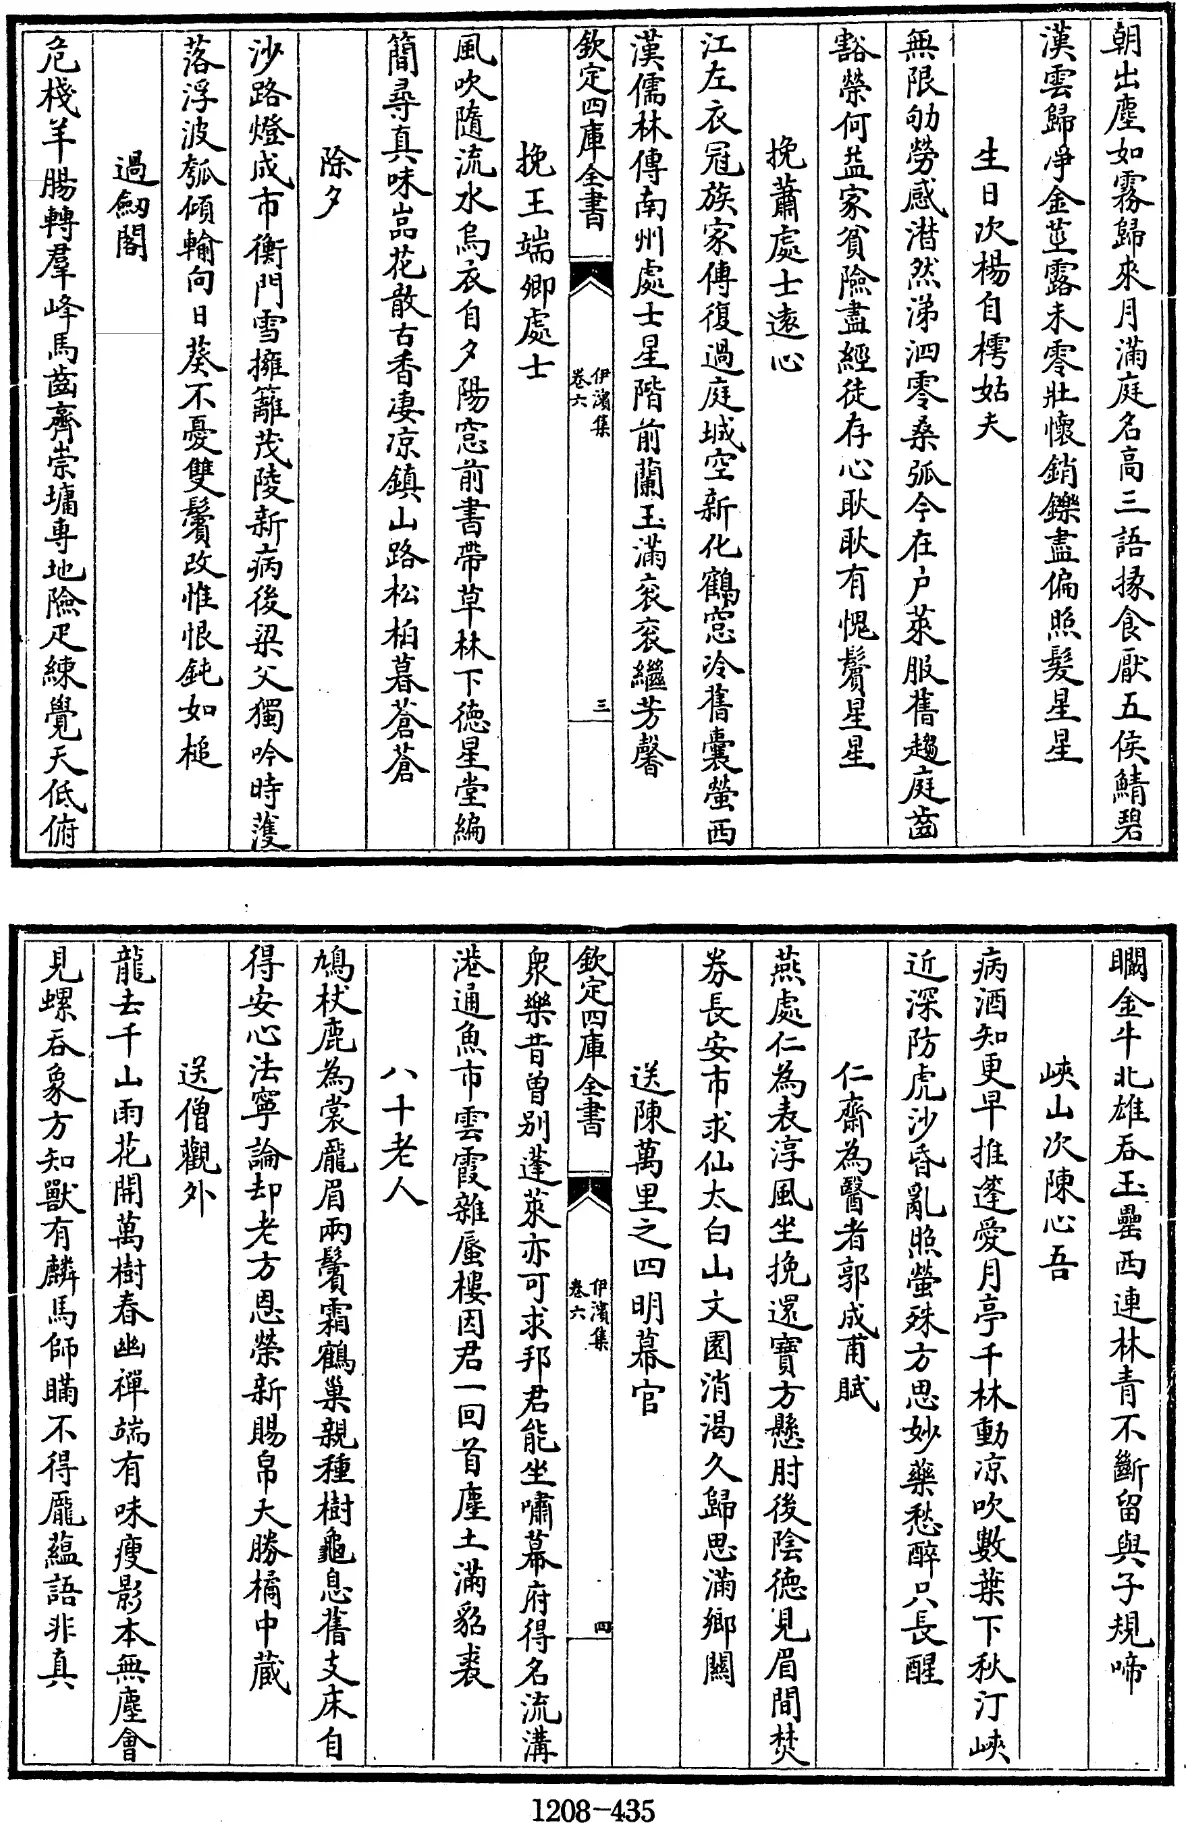 朝出塵如霧歸來月滿庭名高三語掾食厭五侯鯖碧
漢雲歸净金莖露未零壯懷銷鑠盡偏照髪星星
生日次楊自樗姑夫
無限劬勞感潸然涕泗零桑弧今在户萊服舊趨庭齒
豁榮何益家貧險盡經徒存心耿耿有愧鬢星星
挽蕭處士遠心
江左衣冠族家傳復過庭城空新化鶴窓冷舊囊螢西
漢儒林傳南州處士星階前蘭玉滿衮衮繼芳馨
欽定四庫全書
伊濱集
卷六
三
挽王端卿處士
風吹隨流水烏衣自夕陽窓前書帶草林下德星堂編
簡尋真味嵓花散古香凄凉鎮山路松柏暮蒼蒼
除夕
沙路燈成市衡門雪擁籬茂陵新病後梁父獨吟時濩
落浮波瓠傾輸向日葵不憂雙鬢改惟恨鈍如槌
過劒閣
危棧羊腸轉羣峰馬齒齊崇墉専地險疋練覺天低俯
瞯金牛北雄吞玉壘西連林青不斷留與子規啼
峽山次陳心吾
病酒知更早推蓬愛月亭千林動凉吹數葉下秋汀峽
近深防虎沙昏亂照螢殊方思妙藥愁醉只長醒
仁齋為醫者郭成甫賦
燕處仁為表淳風坐挽還寶方懸肘後陰德見眉間焚
券長安市求仙太白山文園消渴久歸思滿鄉關
送陳萬里之四明幕官
欽定四庫全書
伊濱集
卷六
四
衆樂昔曽别蓬萊亦可求邦君能坐嘯幕府得名流溝
港通魚市雲霞雜蜃樓因君一回首塵土滿貂裘
八十老人
鳩杖鹿為裳龎眉兩鬢霜鶴巢親種樹龜息舊支床自
得安心法寧論却老方恩榮新賜帛大勝橘中藏
送僧觀外
龍去千山雨花開萬樹春幽禪端有味瘦影本無塵會
見螺吞象方知獸有麟馬師瞞不得龎藴語非真
1208-435